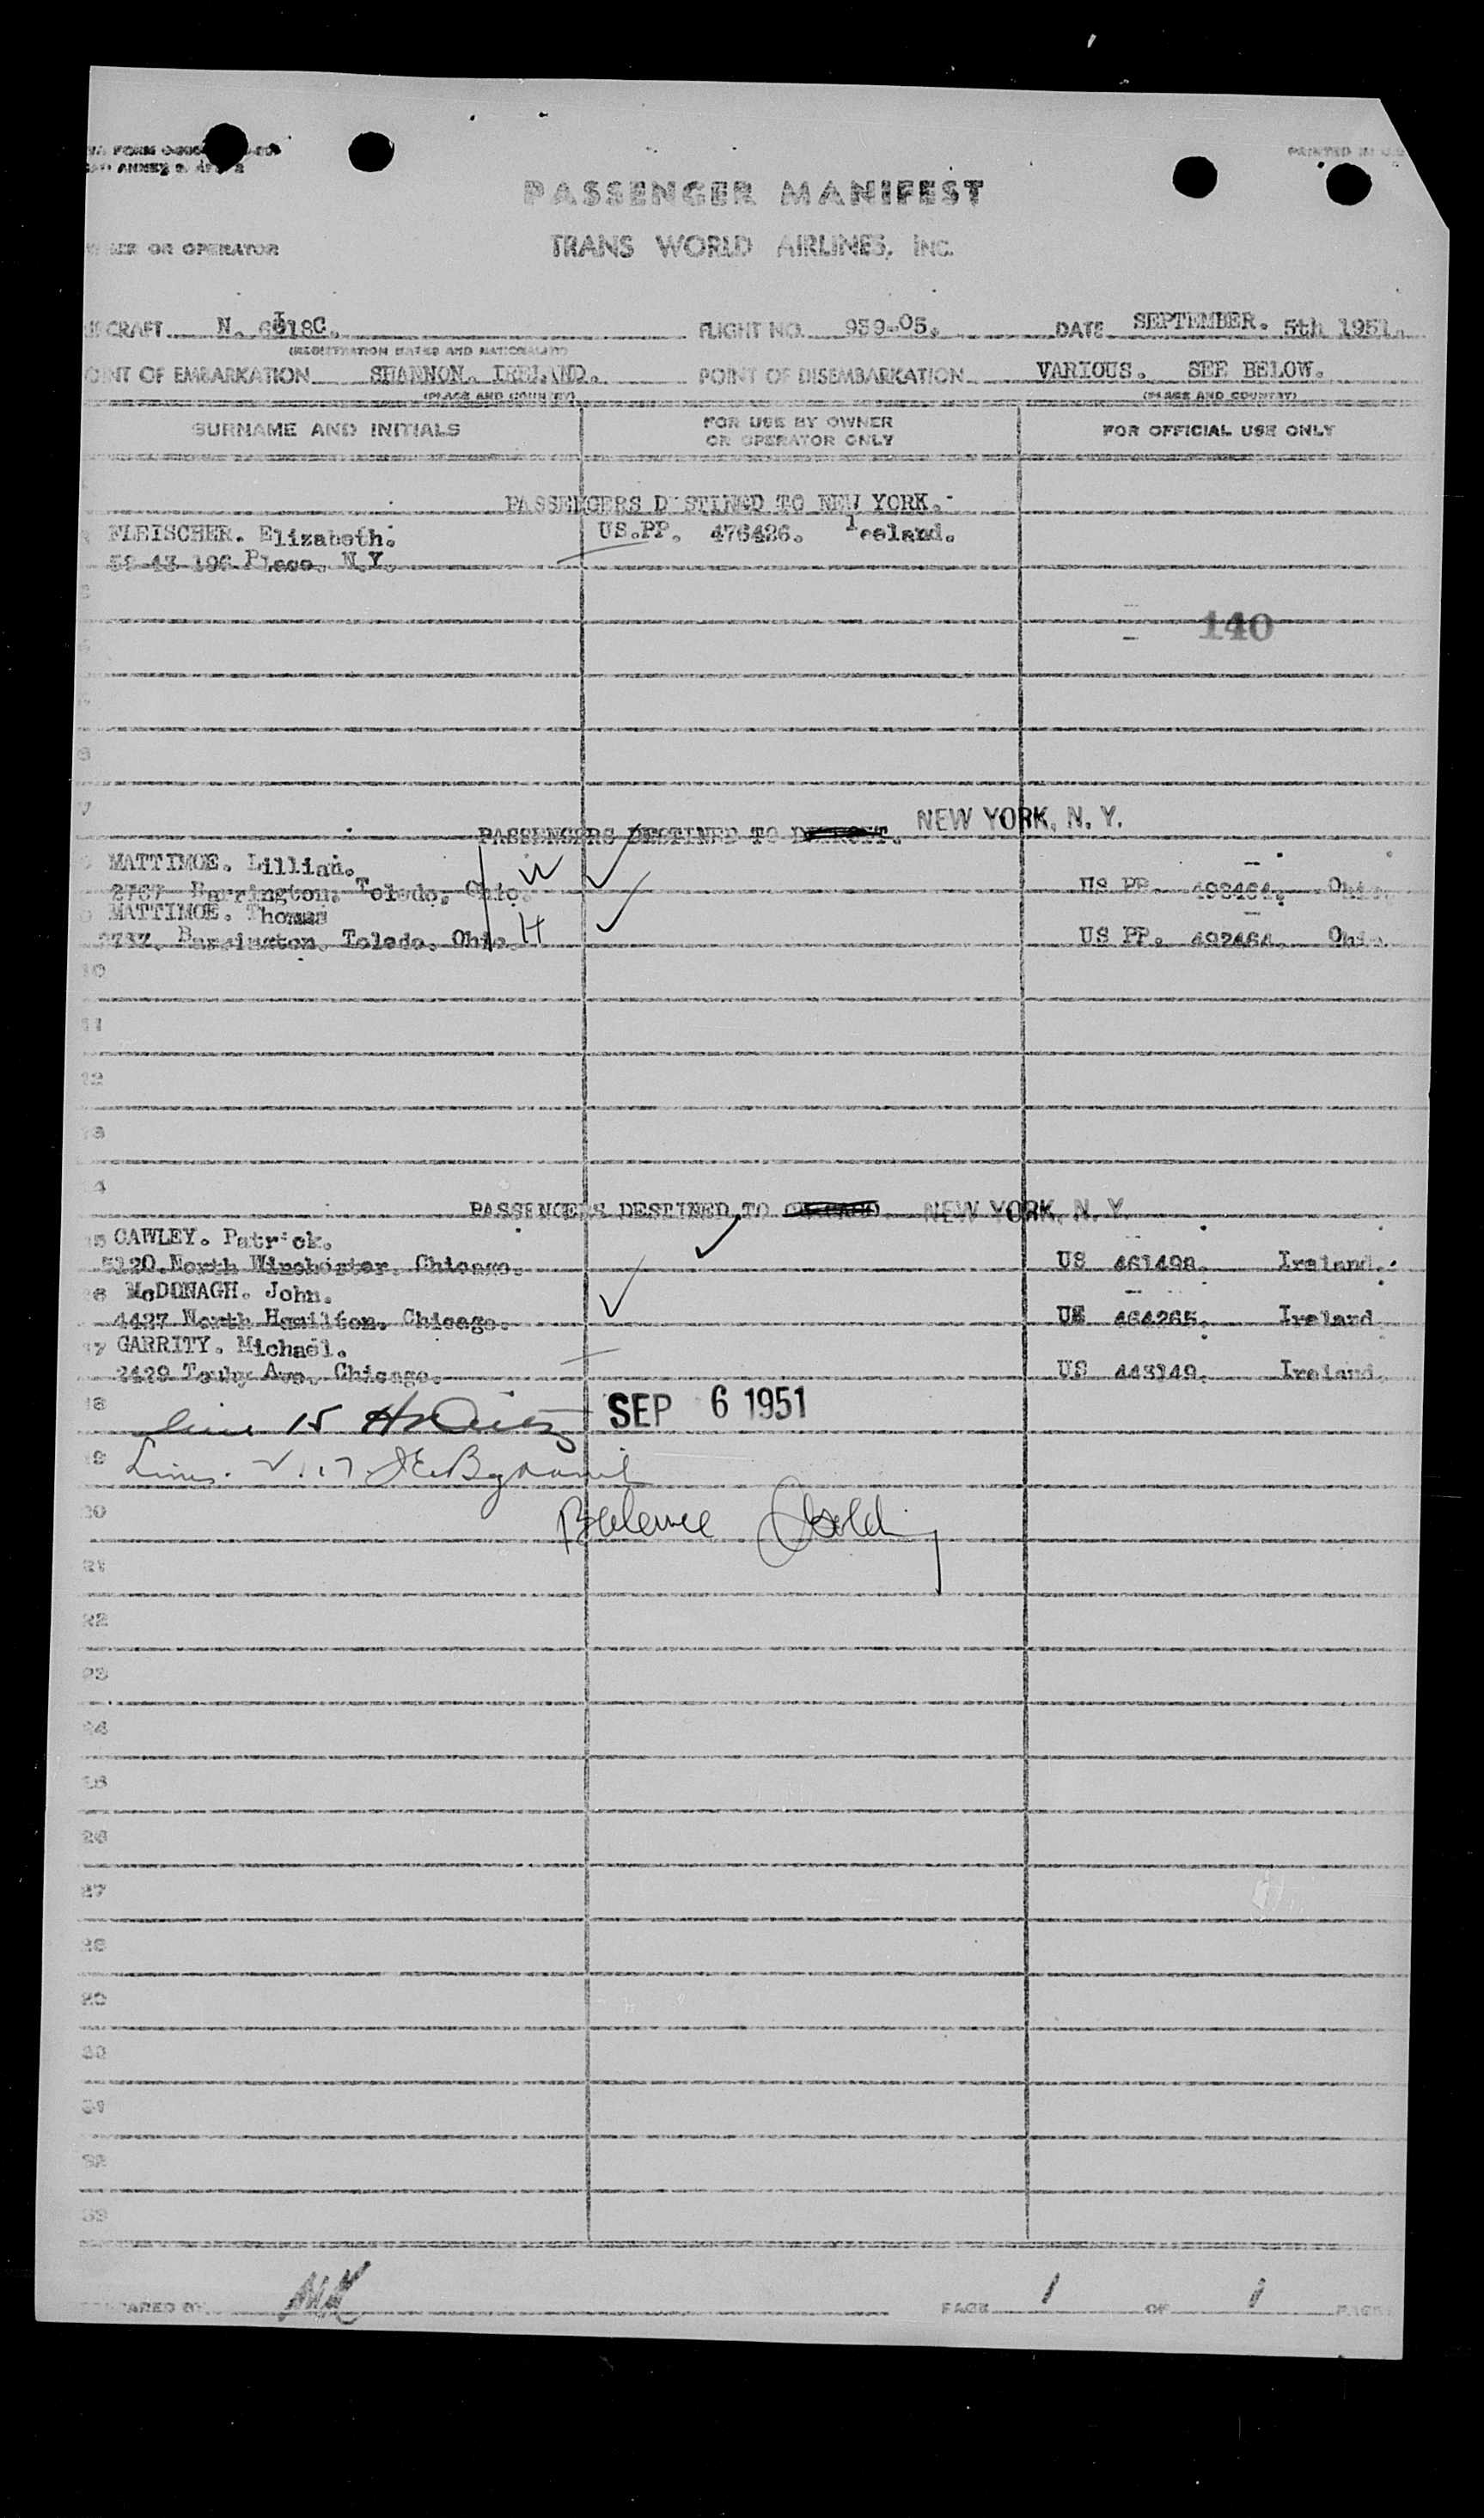 PRINTED IN U.S.
PASSENGER MANIFEST
TRANS WORLD AIRLINES, INC.
OR OPERATOR
N. 6 18C. FLIGHT NO. 959-05. DATE SEPTEMBER. 5th 1951.
(REGISTRATION MARKS AND NATIONALITY)
POINT OF EMBARKATION SHANNON. IRELAND. POINT OF DISEMBARKATION VARIOUS. SEE BELOW.
(PLACE AND COUNTRY) (PLACE AND COUNTRY)
SURNAME AND INITIALS FOR USE BY OWNER OR OPERATOR ONLY FOR OFFICIAL USE ONLY
PASSENGERS DESTINED TO NEW YORK.
FLEISCHER. Elizabeth. US.PP. 476426. Iceland.
Place. N.Y.
140
7
PASSENGERS DESTINED TO DETROIT. NEW YORK, N. Y.
MATTIMOE. Lillian. W
Toledo, Ohio. US PP. Ohio
MATTIMOE. Thomas
Toledo, Ohio. H US PP. 492464. Ohio.
10
11
12
13
14
PASSENGERS DESTINED TO NEW YORK, N. Y.
15 CAWLEY. Patrick.
5120 North Winchester. Chicago. US 461498. Ireland.
16 McDONAGH. John.
4427 North Hamilton. Chicago. US 464265. Ireland
17 GARRITY. Michael.
2429 Touhy Ave. Chicago. US 443149. Ireland.
18
line 15
SEP 6 1951
19
Lines. 2. 17
20
Balance
21
22
23
24
25
26
27
28
29
30
31
32
33
PREPARED BY PAGE 1 OF 1 PAGES